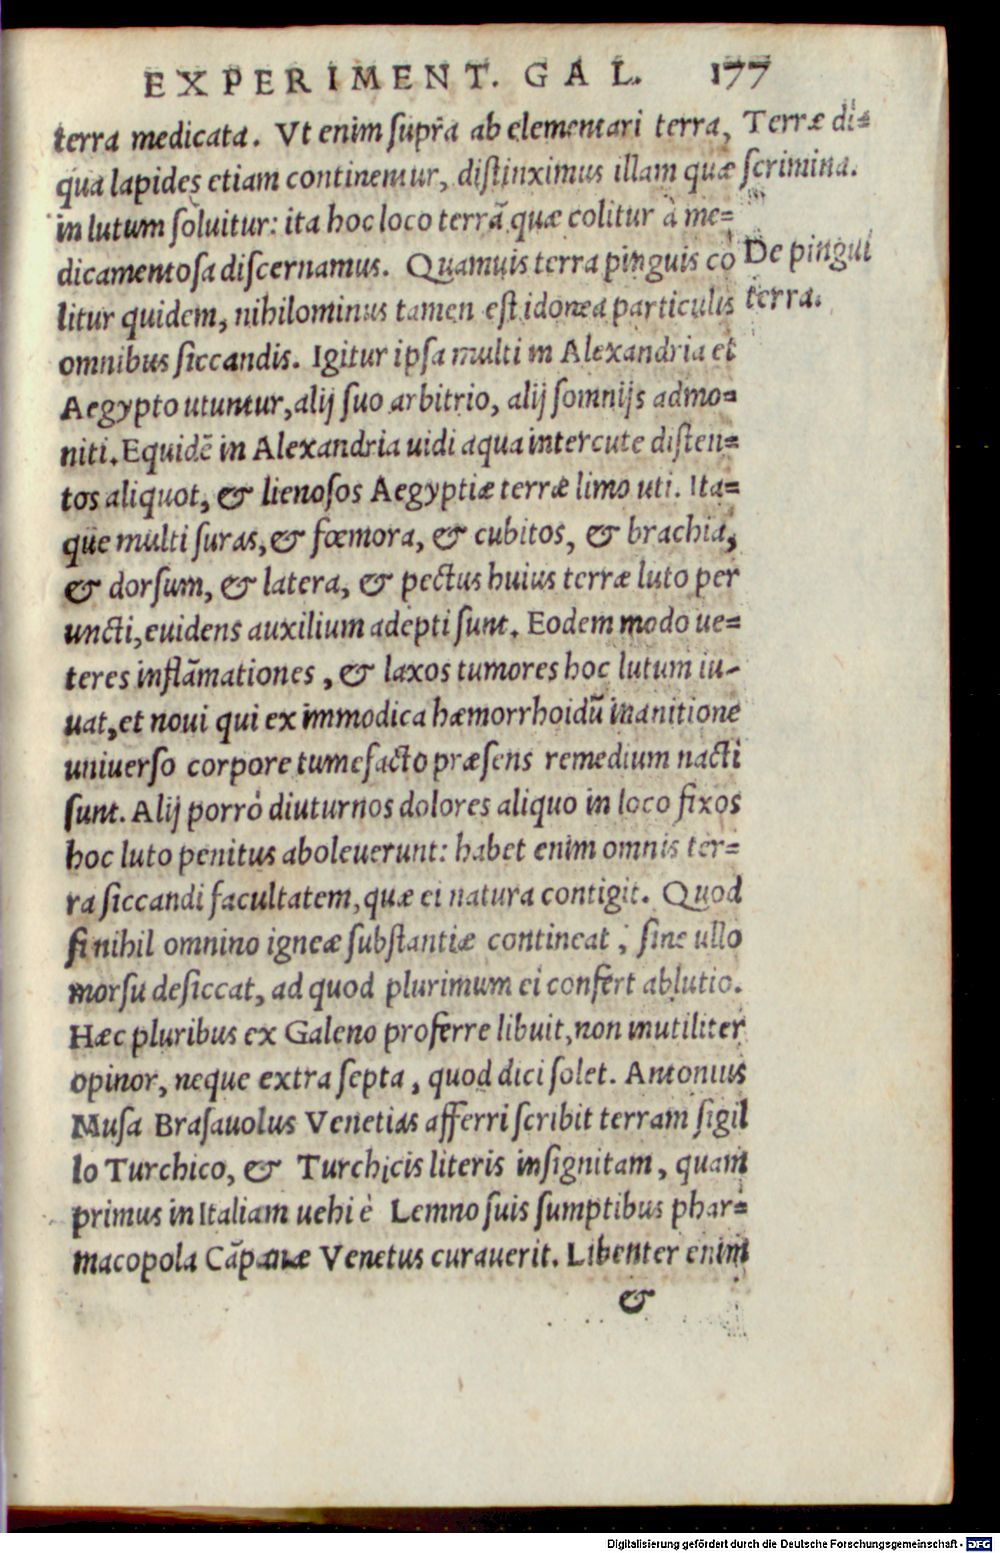 EXPERIMENT. GAL. 177
terra medicata. Vt enim supra ab elementari terra,
qua lapides etiam continentur, distinximus illam quæ
in lutum soluitur: ita hoc loco terrã quæ colitur à me=
dicamentosa discernamus. Quamuis terra pinguis co
litur quidem, nihilominus tamen est idonea particulis
omnibus siccandis. Igitur ipsa multi in Alexandria et
Aegypto utuntur, alij suo arbitrio, alij somnijs admo=
niti. Equidẽ in Alexandria uidi aqua intercute disten=
tos aliquot, & lienosos Aegyptiæ terræ limo uti. Ita=
que multi suras, & fœmora, & cubitos, & brachia,
& dorsum, & latera, & pectus huius terræ luto per
uncti, euidens auxilium adepti sunt. Eodem modo ue=
teres inflãmationes, & laxos tumores hoc lutum iu-
uat, et noui qui ex immodica hæmorrhoidũ inanitione
uniuerso corpore tumefacto præsens remedium nacti
sunt. Alij porrò diuturnos dolores aliquo in loco fixos
hoc luto penitus aboleuerunt: habet enim omnis ter=
ra siccandi facultatem, quæ ei natura contigit. Quod
si nihil omnino igneæ substantiæ contineat, sine ullo
morsu desiccat, ad quod plurimum ei confert ablutio.
Hæc pluribus ex Galeno proferre libuit, non inutiliter
opinor, neque extra septa, quod dici solet. Antonius
Musa Brasauolus Venetias afferri scribit terram sigil
lo Turchico, & Turchicis literis insignitam, quam
primus in Italiam uehi è Lemno suis sumptibus phar=
macopola Cãpanæ Venetus curauerit. Libenter enim
&
Terræ di=
scrimina.
De pingui
terra.
Digitalisierung gefördert durch die Deutsche Forschungsgemeinschaft - DFG